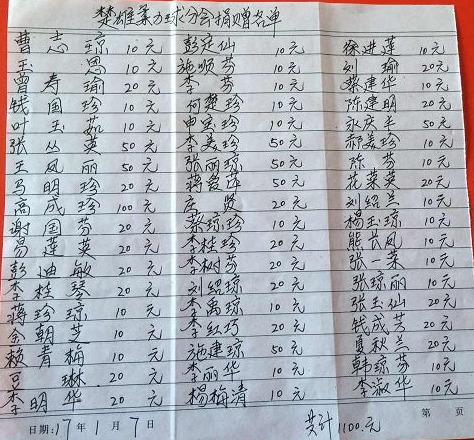 楚雄柔力球分会捐赠名单
曹志琼 10元 彭定仙 10元 徐进莲 10元
玉恩 10元 施顺芬 10元 刘瑜 20元
曾寿瑜 20元 李芬 10元 蔡建华 10元
钱国珍 10元 何楚珍 10元 陈建明 20元
叶玉茹 10元 申宝珍 10元 永庆丰 50元
张丛英 50元 李美珍 50元 郝美珍 10元
王凤丽 50元 张丽琼 50元 陈芬 10元
马明珍 20元 蒋爱萍 50元 花菜英 20元
高成珍 100元 20元 刘绍兰 10元
谢国芬 20元 蔡琼珍 10元 杨玉琼 10元
易莲英 20元 李桂珍 20元 熊长凤 10元
彭迪敏 20元 李树芬 20元 张一菜 10元
李桂琴 20元 刘绍琼 20元 张琼丽 10元
蒋珍琼 10元 李禹琼 10元 张玉仙 20元
余朝芝 10元 李红巧 20元 钱成芳 20元
赖青梅 10元 施建琼 50元 夏秋兰 20元
琳 20元 李丽华 10元 韩琼芬 10元
李明华 20元 杨梅清 10元 李淑华 10元
日期:17年1月7日 共计1100.元 第 页